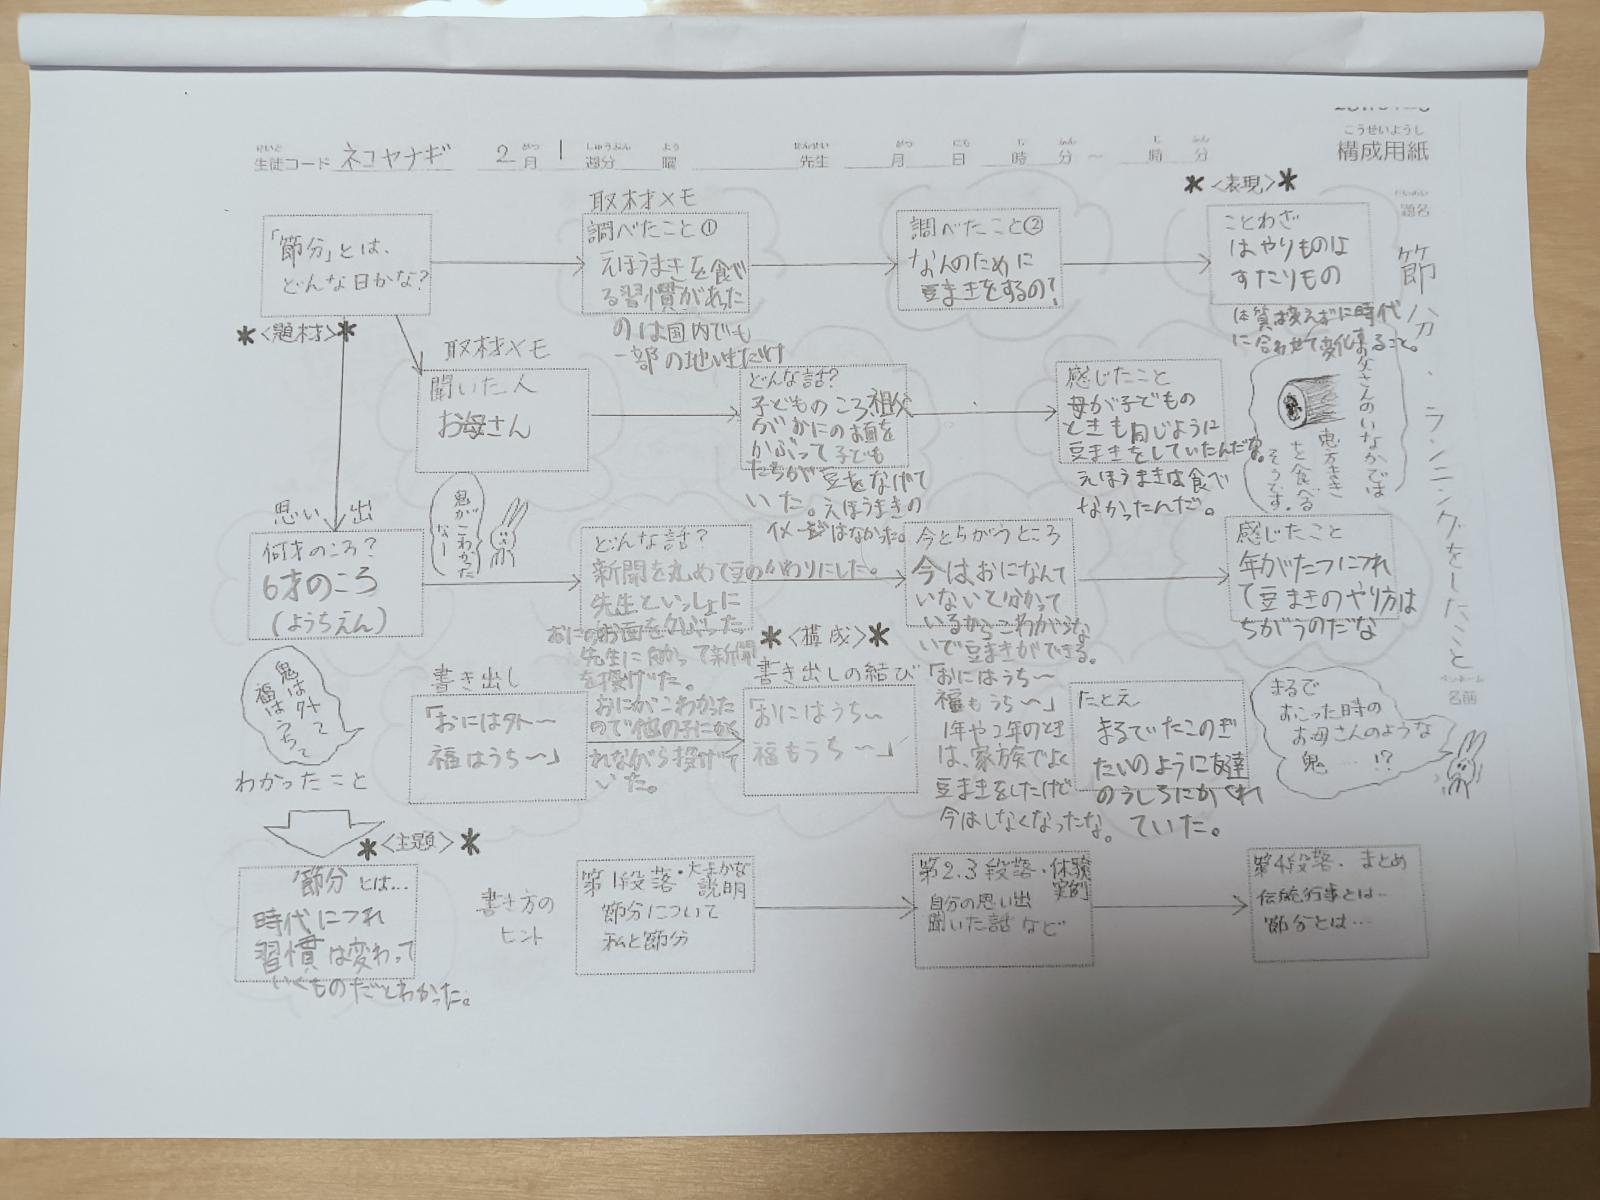 こうせいようし
構成用紙
せいと
生徒コード ネコヤナギ 2月 1 週分 曜 先生 月 日 時 分 ~ 時 分
題名
節分・ランニングをしたこと
ペンネーム
名前
「節分」とは、
どんな日かな?
*<題材>*
取材メモ
調べたこと①
えほうまきを食べ
る習慣があった
のは国内でも
一部の地いきだけ
調べたこと②
なんのために
豆まきをするの?
*<表現>*
ことわざ
はやりものは
すたりもの
体質は変えずに時代
に合わせて変化すること。
お父さんのいなかでは
恵方まき
を食べる
そうです。
取材メモ
聞いた人
お母さん
どんな話?
子どものころ、祖父
がおにのお面を
かぶって子ども
たちが豆をなげて
いた。えほうまきの
イメージはなかった。
感じたこと
母が子どもの
ときも同じように
豆まきをしていたんだな。
えほうまきは食べ
なかったんだ。
思い出
何才のころ?
6才のころ
(ようちえん)
鬼が
こわかった
なー
どんな話?
新聞を丸めて豆のかわりにした。
先生といっしょに
おにのお面をかぶった
先生に向かって新聞
を投げた。
おにがこわかった
ので他の子にかく
れながら投げて
いた。
今とちがうところ
今は、おになんて
いないと分かって
いるからこわがらな
いで豆まきができる。
感じたこと
年がたつにつれ
て豆まきのやり方は
ちがうのだな
*<構成>*
書き出し
「おには外~
福はうち~」
鬼は外って
福はうちって
書き出しの結び
「おにはうち~
福もうち~」
「おにはうち~
福もうち~」
1年や2年のとき
は、家族でよく
豆まきをしたけど
今はしなくなったな。
たとえ
まるでたこのぎ
たいのように友達
のうしろにかくれ
ていた。
まるで
おこった時の
お母さんのような
鬼……!?
わかったこと
*<主題>*
「節分」とは…
時代につれ
習慣は変わって
いくものだとわかった。
書き方の
ヒント
第1段落・大まかな
説明
節分について
私と節分
第2.3段落・体験
実例
自分の思い出
聞いた話など
第4段落・まとめ
伝統行事とは…
節分とは…